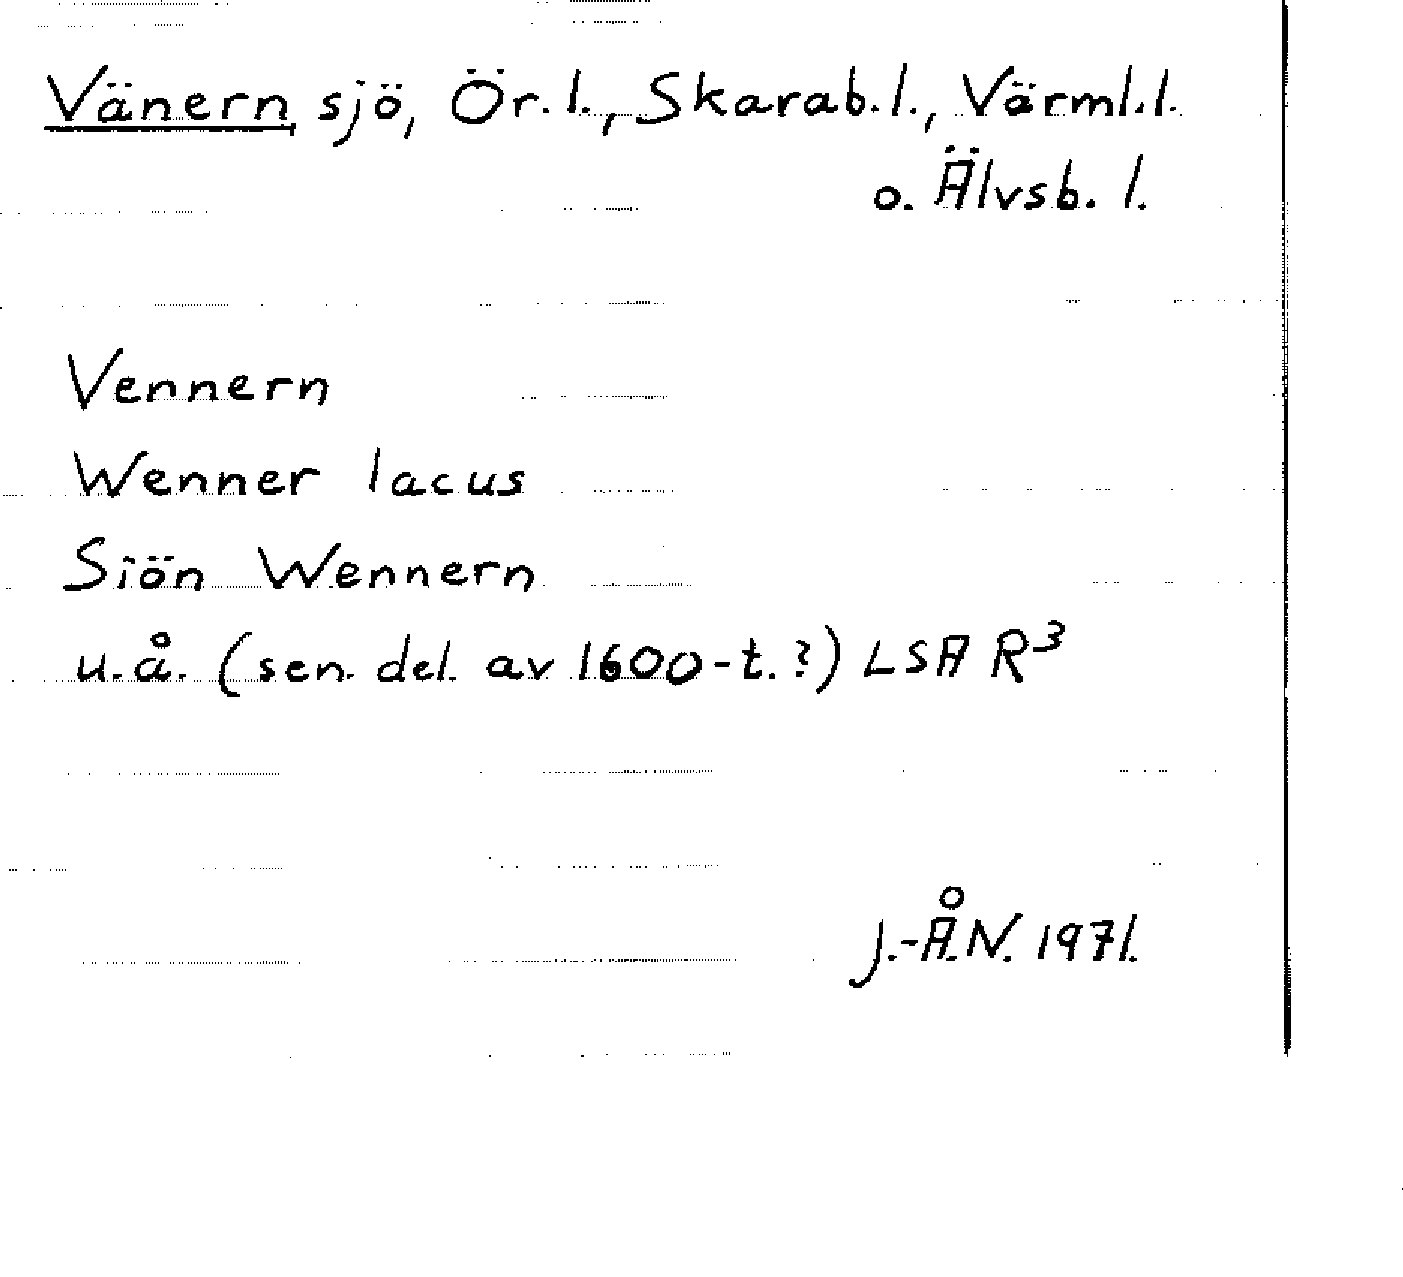 Vänern, sjö, Ör. l., Skarab. l., Värml. l.
o. Älvsb. l.
Vennern
Wenner lacus
Siön Wennern
u.å. (sen. del. av 1600-t. ?) LSA R³
J.-Å.N. 1971.